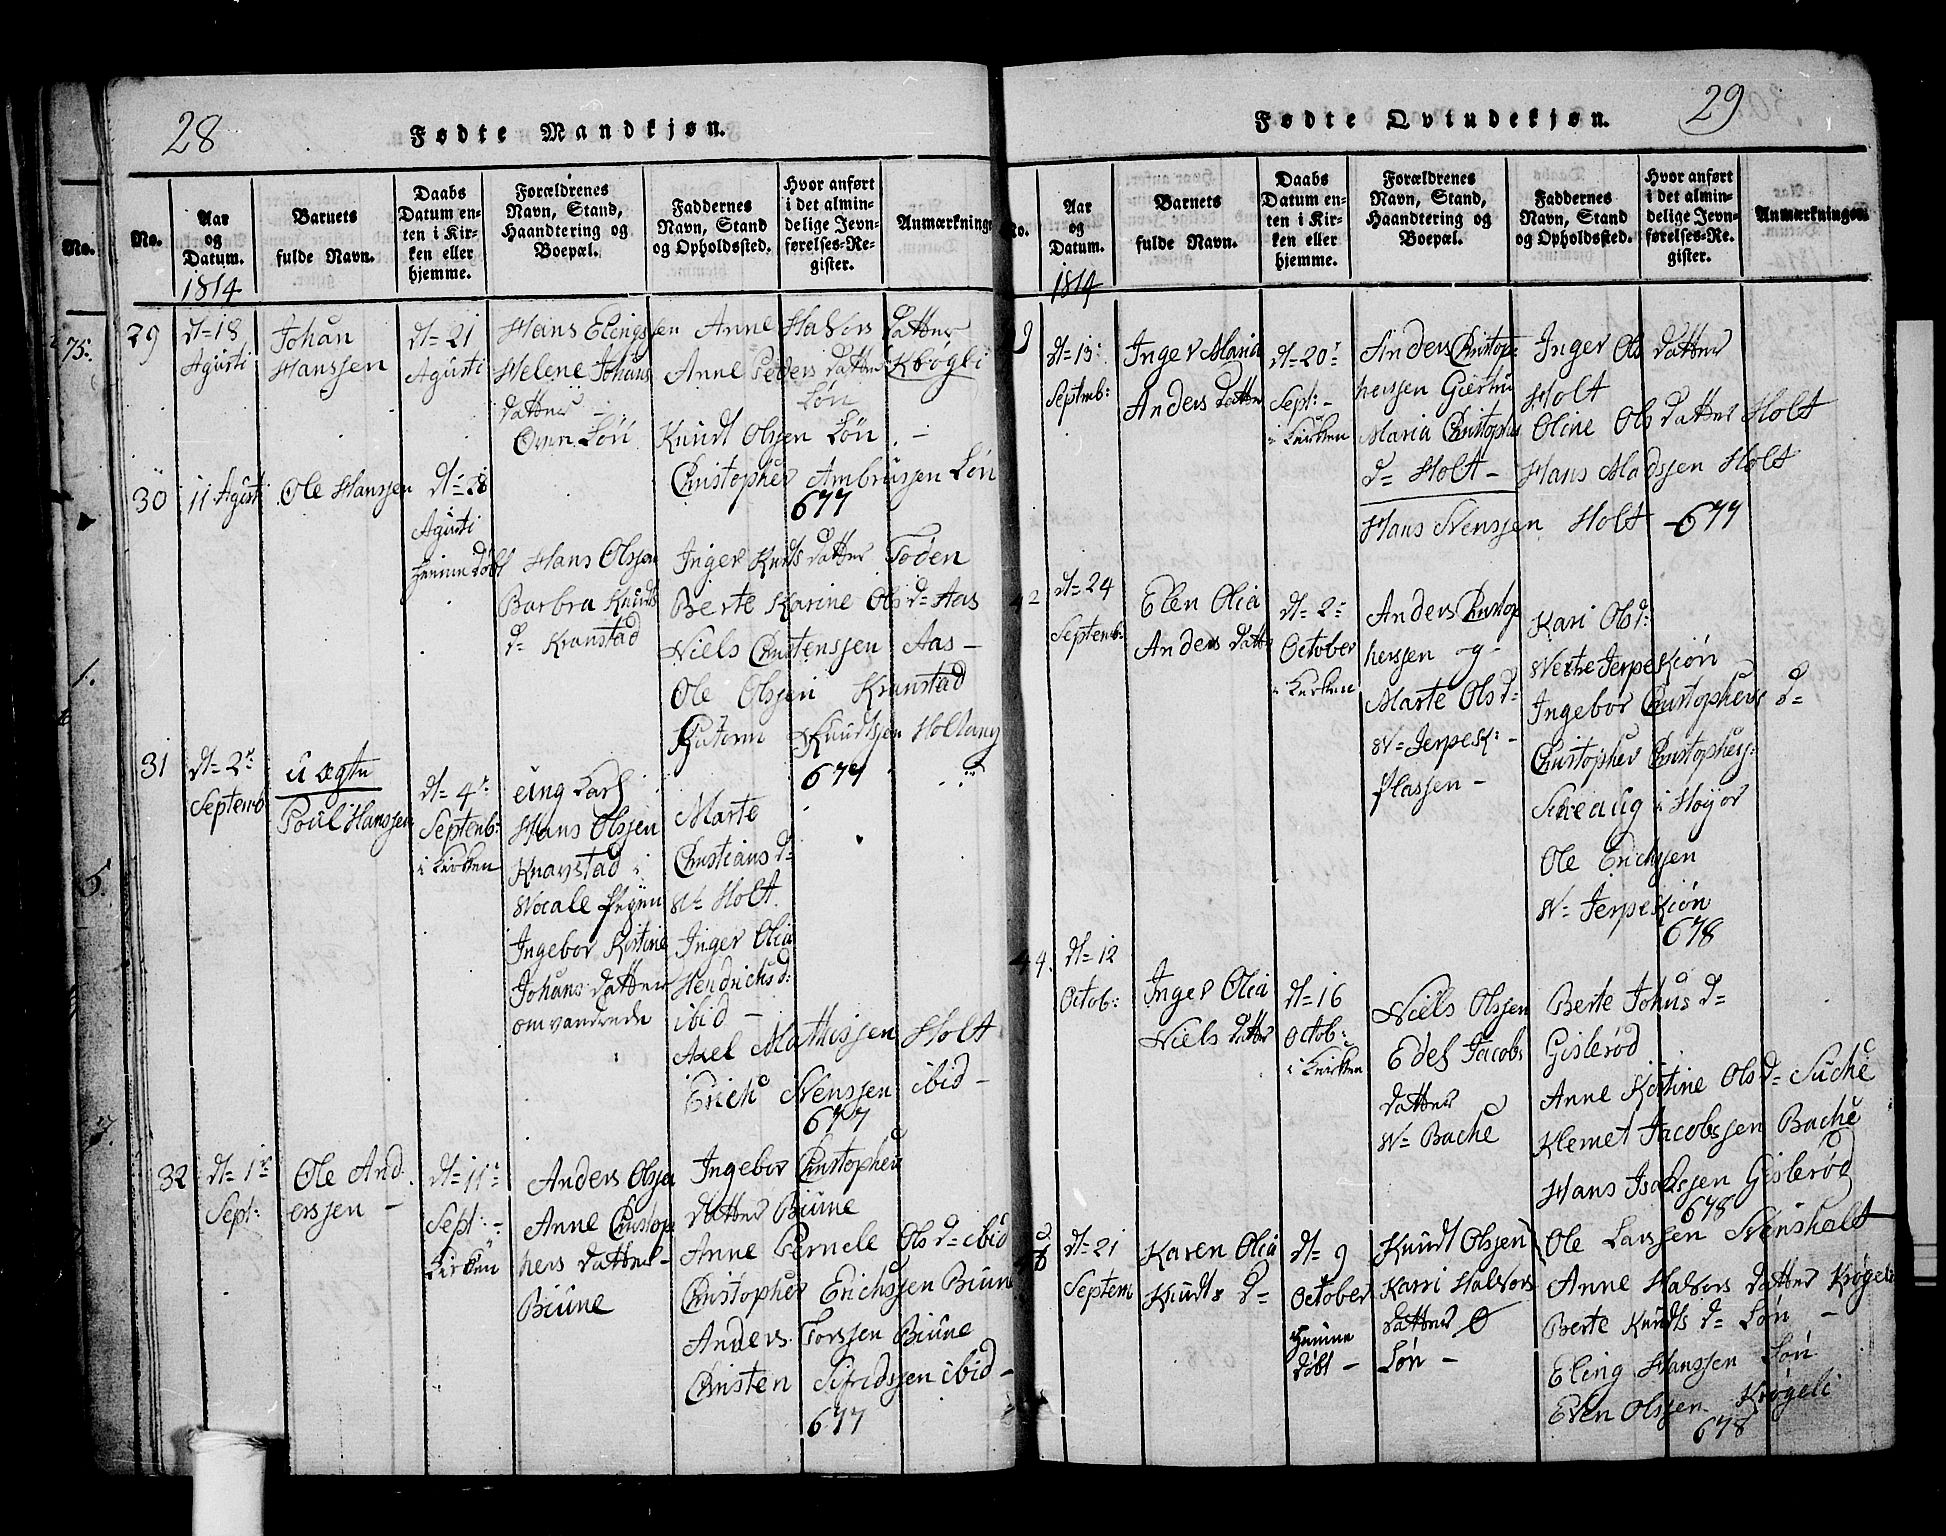 28
Fødte Mandkjøn.
No.
Aar og Datum.
Barnets fulde Navn.
Daabs Datum enten i Kirken eller hjemme.
Forældrenes Navn, Stand, Haandtering og Boepæl.
Faddernes Navn, Stand og Opholdssted.
Hvor anført i det almindelige Jevnførelses-Register.
Anmærkning
1814
29
dt= 18 Agusti
Johan Hanssen
dt= 21 Agusti
Hans Elingssen
Helene Johans
datter -
Løn
Anne Halvors datter
Krøgli
Anne Peders datter
Løn
Knudt Olssen Løn . -
Christopher Ambrussen Løn
677
30
11 Agusti
Ole Hanssen
dt= 28
Agusti
hiemme døbt
Hans Olssen
Barbra Knudts
d= Kranstad
Inger Knudts datter Foden
Berte Karine Ols d= Aas
Niels Christenssen Aas -
Ole Olssen Kranstad
Gutorm Knudtssen Holtang
677
31
dt= 2
Septemb
u ægte
Poul Hanssen
dt= 4
Septenb:
i Kirken
ung Karl
Hans Olssen
Knavstad
Ingebor Kirstine
Johans datter
omvandrede
Marte
Christians d=
Holt.
Inger Olia
Hendrichs d:
ibid -
Axel Mathissen Holt
Erich Svenssen ibid -
677
32
dt= 1
Sept:
Ole And
erssen -
dt= 11
Sept: -
Kirken
Anders Olssen
Anne Christop
hers datter -
Biune
Ingebor Christophers
datter Biune
Anne Pernele Ols d= ibid
Christopher Erichssen Biune
Anders Torssen Biune
Christen Sifridssen ibid -
677
29
Fødte Qvindekjøn.
No.
Aar og Datum.
Barnets fulde Navn.
Daabs Datum enten i Kirken eller hjemme.
Forældrenes Navn, Stand, Haandtering og Boepæl.
Faddernes Navn, Stand og Opholdssted.
Hvor anført i det almindelige Jevnførelses-Register.
Anmærkninger.
1814
dt= 13
Septmb:
Inger Maria
Anders datter
dt= 20
Sept: -
i Kirken
Anders Christop:
herssen Giertru
Maria Christophers
d= Holt -
Inger Ols datter
Holt
Oline Ols datter Holt
Hans Madssen Holt
Hans Svenssen Holt - 677
dt= 24
Septemb:
Elen Olia
Anders datter
dt= 2
October
i Kirken
Anders Christop
herssen -g-
Marte Ols d=
W= Jerpek: -
plassen -
Kari Ols d:
Westre Jerpekiøn
Ingebor Christophers d=
Christopher Christophers:
i Høyor
Ole Erichssen
W= Jerpekiøn
678
dt= 12
Octob:
Inger Olia
Niels datter
dt= 16
Octob:
i Kirken
Niels Olssen
Edel Jacobs
datter
W= Bache
Berte Johns d=
Gislerød
Anne Kirstine Ols d= Suche
Klemet Jacobssen Bache
Hans Isachssen Gislerød
678
dt= 21
Septem
Karen Olia
Knudts d=
dt= 9
October
hiemme
døbt -
Knudt Olssen
Karri Halvors
datter Ø
Løn -
Ole Larssen Svensholt
Anne Halvors datter Krøgeli
Berte Knudts d= Løn -
Eling Hanssen Løn
Even Olssen Krøgeli
678